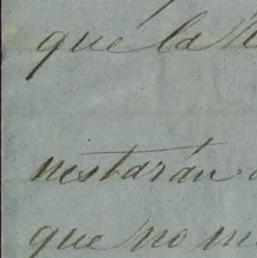 que la
nestarán
que no